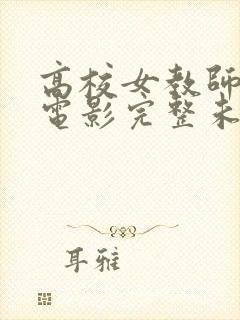 高校女教師
電影完整未
耳雅